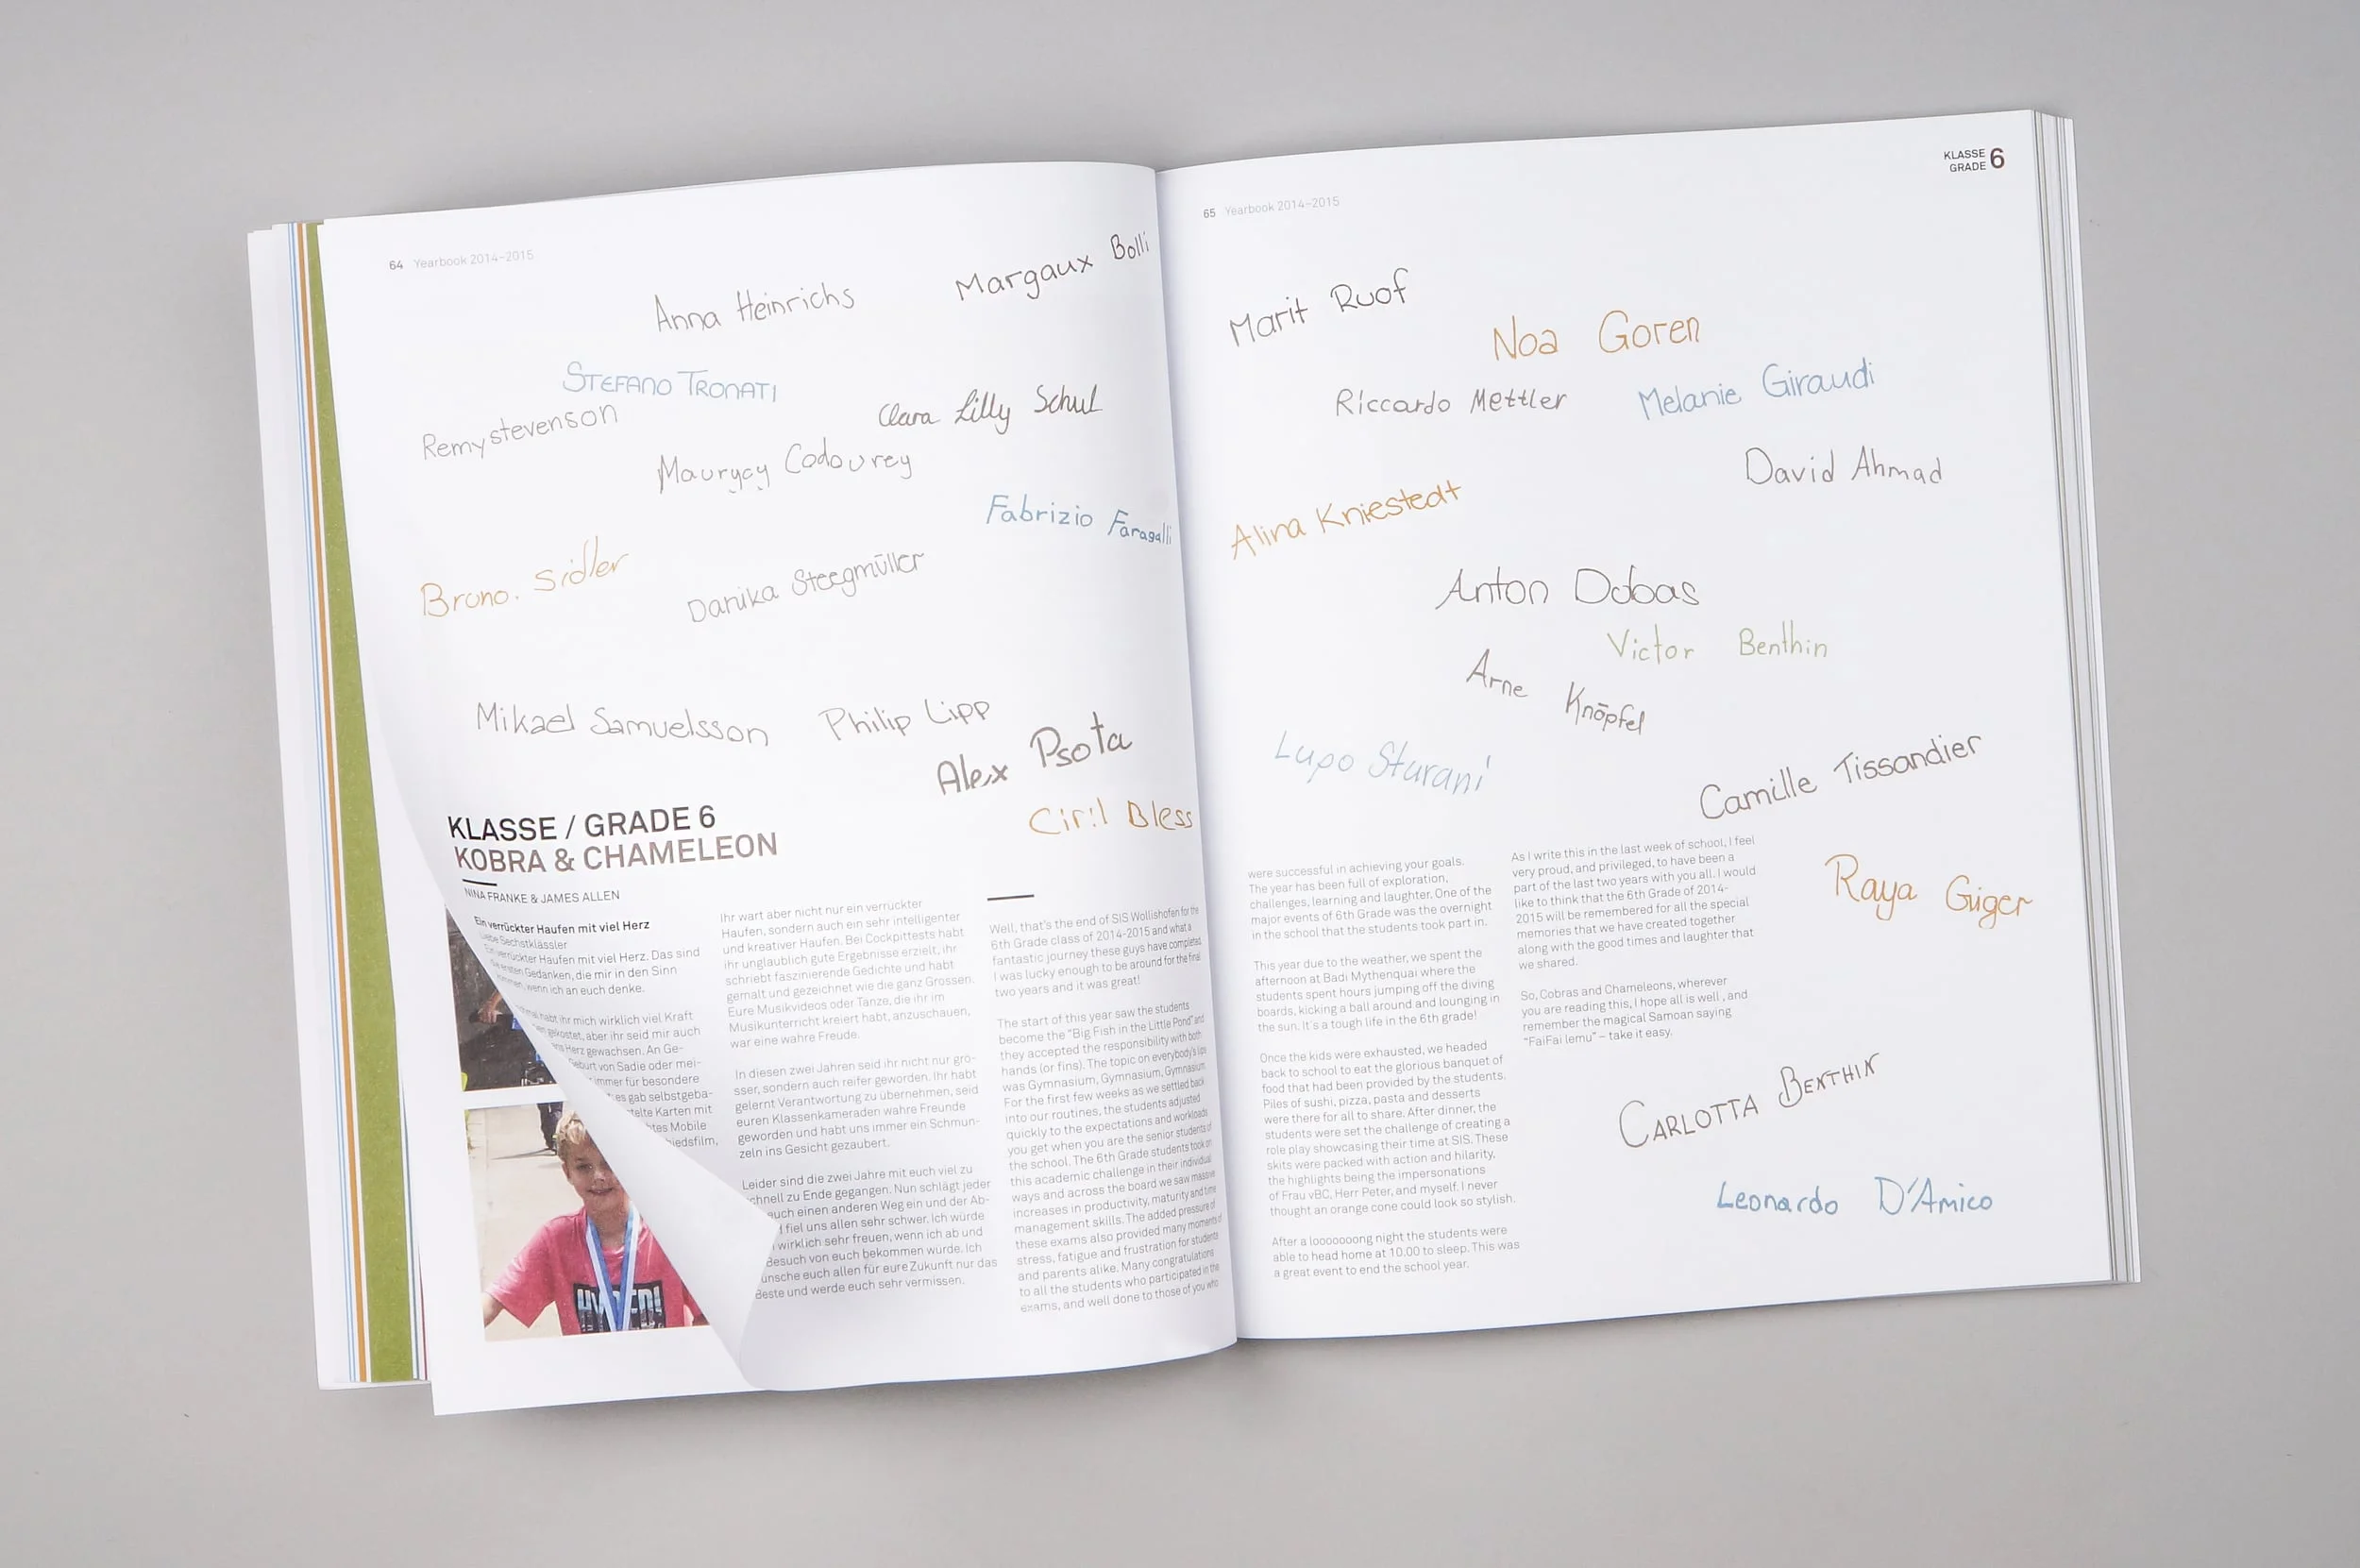 64 Yearbook 2014–2015
Anna Heinrichs
Margaux Bolli
STEFANO TRONATI
Remy stevenson
Clara Lilly Schul
Maurycy Codourey
Fabrizio Faragalli
Bruno. Sidler
Danika Steegmüller
Mikael Samuelsson
Philip Lipp
Alex Psota
Ciril Bless
KLASSE / GRADE 6
KOBRA & CHAMELEON
NINA FRANKE & JAMES ALLEN
Ein verrückter Haufen mit viel Herz
Liebe Sechstklässler
Ein verrückter Haufen mit viel Herz. Das sind
die ersten Gedanken, die mir in den Sinn
wenn ich an euch denke.
habt ihr mich wirklich viel Kraft
gekostet, aber ihr seid mir auch
Herz gewachsen. An Ge-
von Sadie oder mei-
immer für besondere
es gab selbstgeba-
Karten mit
Mobile
Ihr wart aber nicht nur ein verrückter
Haufen, sondern auch ein sehr intelligenter
und kreativer Haufen. Bei Cockpittests habt
ihr unglaublich gute Ergebnisse erzielt, ihr
schriebt faszinierende Gedichte und habt
gemalt und gezeichnet wie die ganz Grossen.
Eure Musikvideos oder Tänze, die ihr im
Musikunterricht kreiert habt, anzuschauen,
war eine wahre Freude.
In diesen zwei Jahren seid ihr nicht nur grö-
sser, sondern auch reifer geworden. Ihr habt
gelernt Verantwortung zu übernehmen, seid
euren Klassenkameraden wahre Freunde
geworden und habt uns immer ein Schmun-
zeln ins Gesicht gezaubert.
Leider sind die zwei Jahre mit euch viel zu
schnell zu Ende gegangen. Nun schlägt jeder
euch einen anderen Weg ein und der Ab-
fiel uns allen sehr schwer. Ich würde
wirklich sehr freuen, wenn ich ab und
Besuch von euch bekommen würde. Ich
wünsche euch allen für eure Zukunft nur das
Beste und werde euch sehr vermissen.
Well, that's the end of SIS Wollishofen for the
6th Grade class of 2014-2015 and what a
fantastic journey these guys have completed.
I was lucky enough to be around for the final
two years and it was great!
The start of this year saw the students
become the "Big Fish in the Little Pond" and
they accepted the responsibility with both
hands (or fins). The topic on everybody's lips
was Gymnasium, Gymnasium, Gymnasium.
For the first few weeks as we settled back
into our routines, the students adjusted
quickly to the expectations and workloads
you get when you are the senior students of
the school. The 6th Grade students took on
this academic challenge in their individual
ways and across the board we saw massive
increases in productivity, maturity and time
management skills. The added pressure of
these exams also provided many moments of
stress, fatigue and frustration for students
and parents alike. Many congratulations
to all the students who participated in the
exams, and well done to those of you who
65 Yearbook 2014–2015
KLASSE
GRADE 6
Marit Ruof
Noa Goren
Riccardo Mettler
Melanie Giraudi
David Ahmad
Alina Kniestedt
Anton Dobas
Victor Benthin
Arne Knöpfel
Lupo Sturani
Camille Tissandier
Raya Giger
were successful in achieving your goals.
The year has been full of exploration,
challenges, learning and laughter. One of the
major events of 6th Grade was the overnight
in the school that the students took part in.
This year due to the weather, we spent the
afternoon at Badi Mythenquai where the
students spent hours jumping off the diving
boards, kicking a ball around and lounging in
the sun. It's a tough life in the 6th grade!
Once the kids were exhausted, we headed
back to school to eat the glorious banquet of
food that had been provided by the students.
Piles of sushi, pizza, pasta and desserts
were there for all to share. After dinner, the
students were set the challenge of creating a
role play showcasing their time at SIS. These
skits were packed with action and hilarity,
the highlights being the impersonations
of Frau vBC, Herr Peter, and myself. I never
thought an orange cone could look so stylish.
After a looooooong night the students were
able to head home at 10.00 to sleep. This was
a great event to end the school year.
As I write this in the last week of school, I feel
very proud, and privileged, to have been a
part of the last two years with you all. I would
like to think that the 6th Grade of 2014-
2015 will be remembered for all the special
memories that we have created together
along with the good times and laughter that
we shared.
So, Cobras and Chameleons, wherever
you are reading this, I hope all is well , and
remember the magical Samoan saying
"FaiFai lemu" – take it easy.
CARLOTTA BENTHIN
Leonardo D'Amico